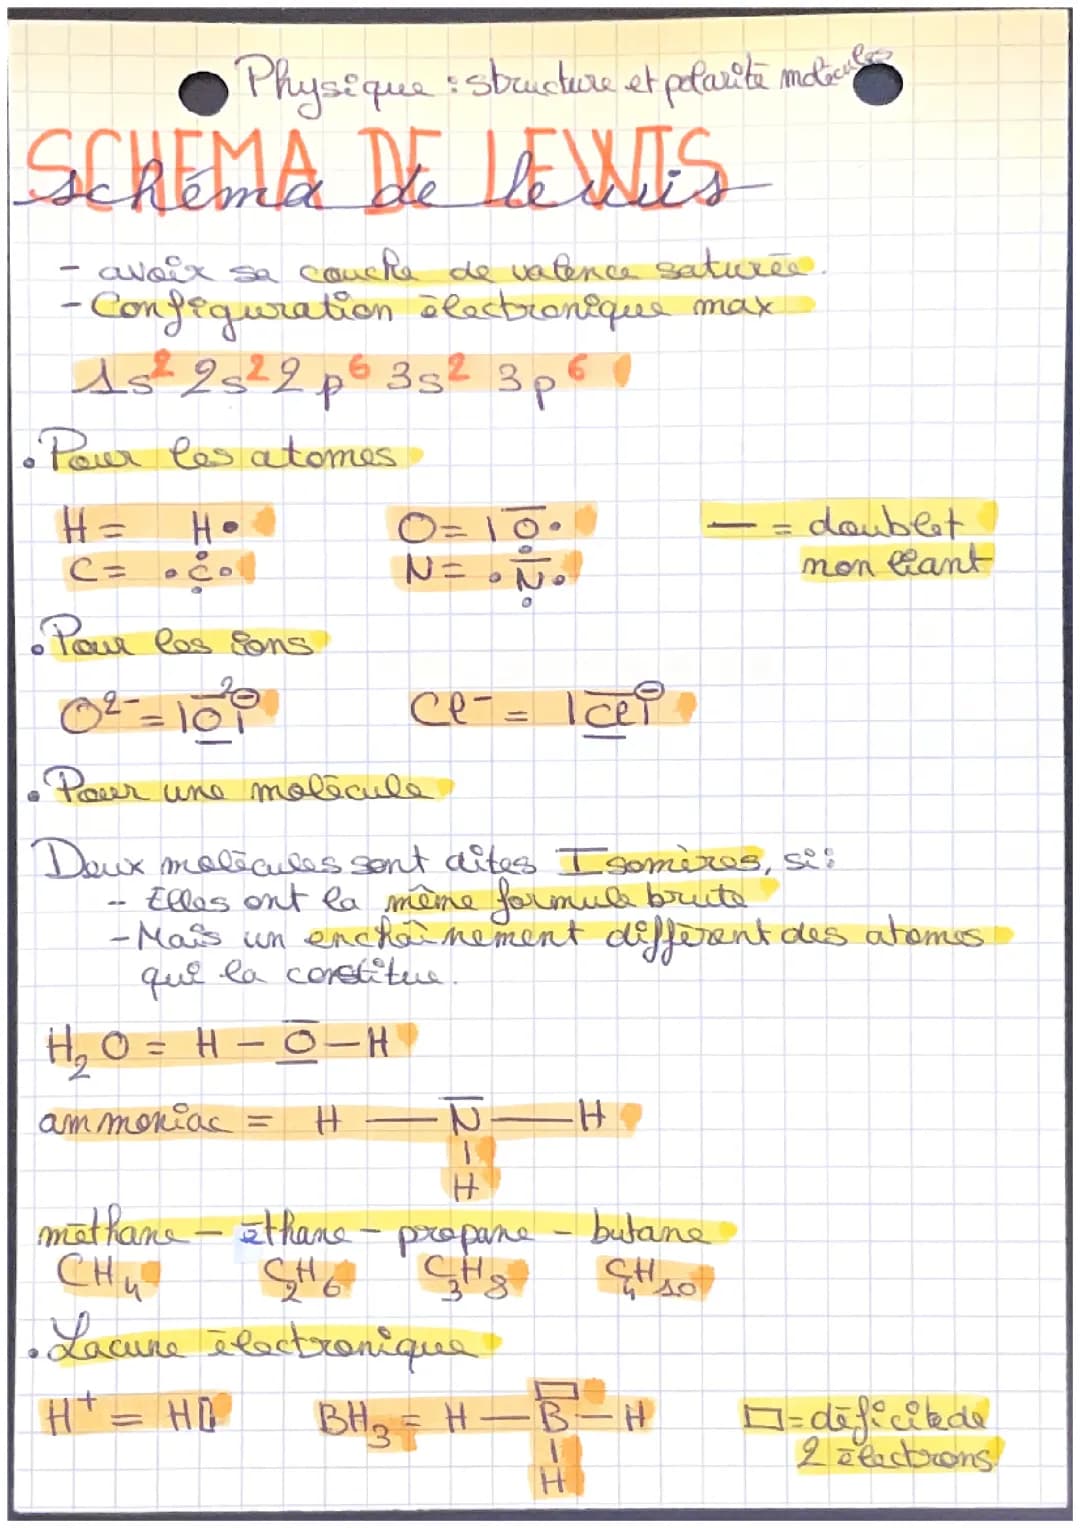 Physique : structure et polarité molécules
SCHEMA DE LEWIS
schéma de lewis
- avoir sa couche de valence saturée.
- Configuration électronique max
1s² 2s² 2p⁶ 3s² 3p⁶
• Pour les atomes
H = H• O = |O̅• — = doublet
C = •C• N = •N̅• non liant
• Pour les ions
O²⁻ = |O̲̅|²⊖ Cl⁻ = |C̲̅l̲̅|⊖
• Pour une molécule
Deux molécules sont dites Isomères, si :
- Elles ont la même formule brute
- Mais un enchaînement différent des atomes
qui la constitue.
H₂O = H — O̲̅ — H
ammoniac = H — N̅ — H
|
H
méthane - éthane - propane - butane
CH₄ C₂H₆ C₃H₈ C₄H₁₀
• Lacune électronique
H⁺ = H▯ BH₃ = H — B — H ▭ = déficit de
| 2 électrons
H